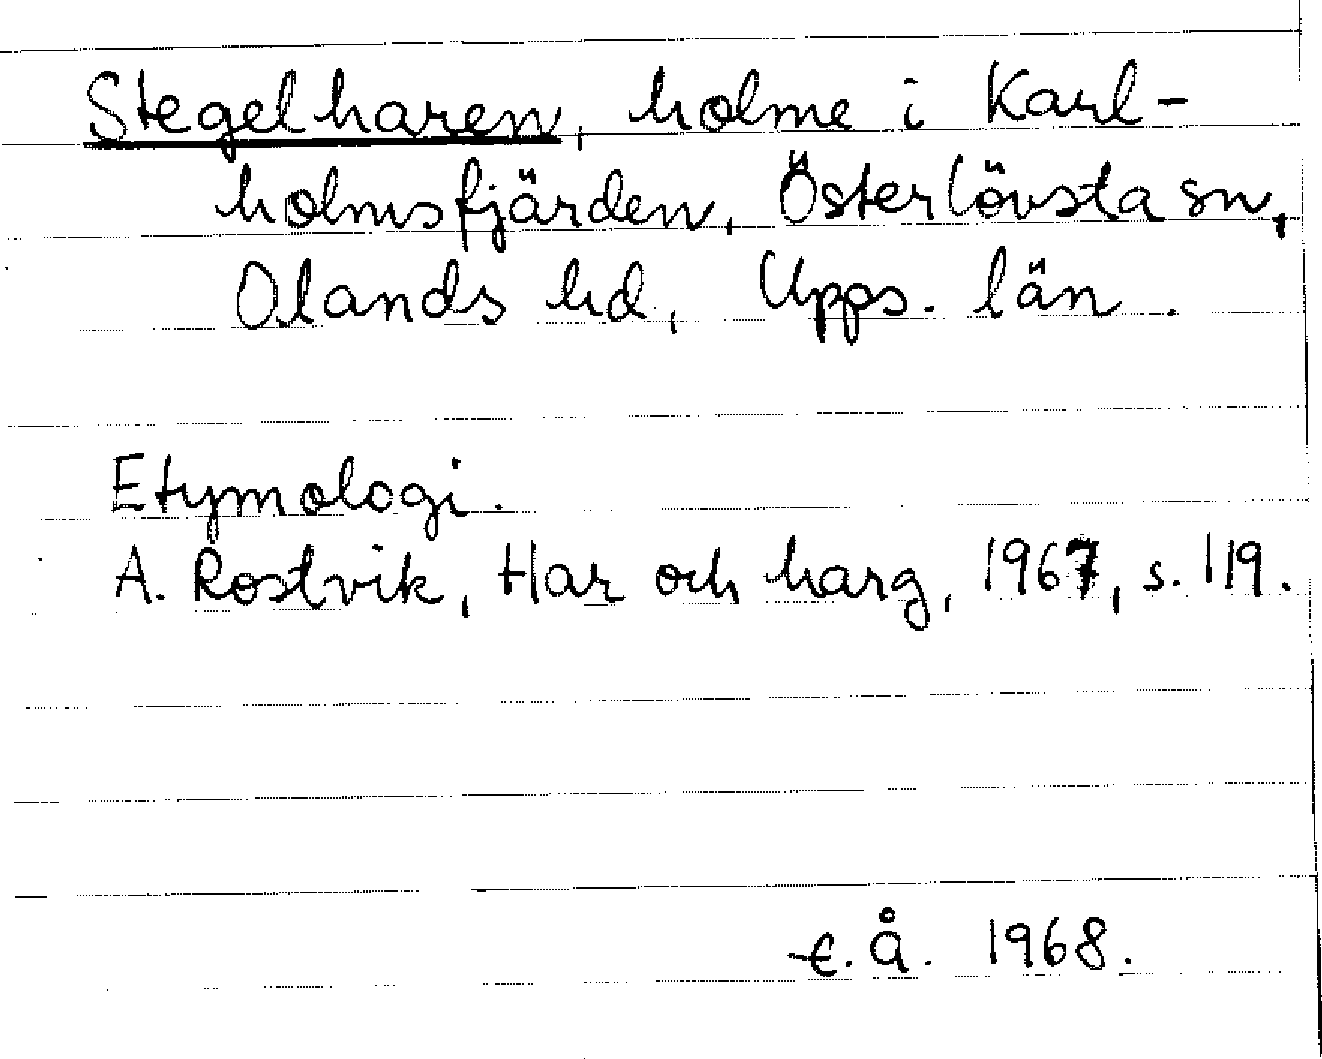 Stegelharen, holme i Karl-
holmsfjärden, Österlövsta sn,
Olands hd, Upps. län.
Etymologi.
A. Rostvik, Har och harg, 1967, s. 119.
E. Å. 1968.